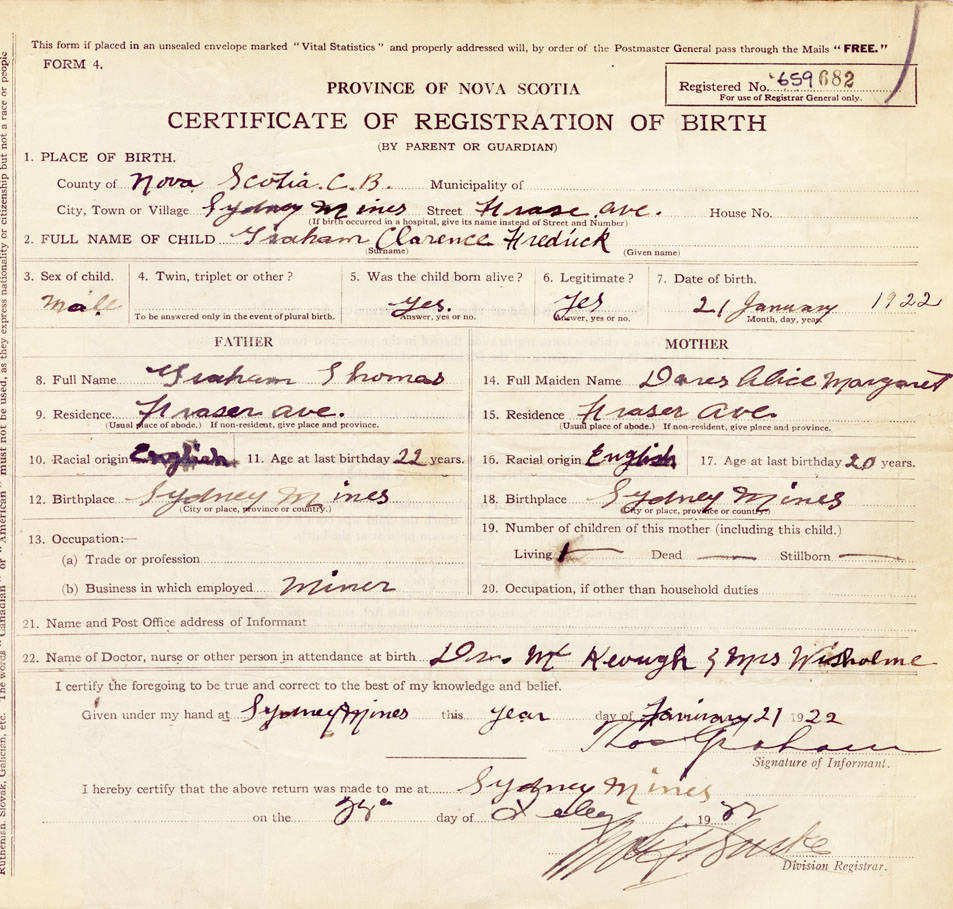 This form if placed in an unsealed envelope marked "Vital Statistics" and properly addressed will, by order of the Postmaster General pass through the Mails "FREE."
FORM 4.
PROVINCE OF NOVA SCOTIA
Registered No. 659 682
For use of Registrar General only.
CERTIFICATE OF REGISTRATION OF BIRTH
(BY PARENT OR GUARDIAN)
1. PLACE OF BIRTH.
County of Nova Scotia. C. B. Municipality of
City, Town or Village Sydney Mines Street Frase ave. House No.
(If birth occurred in a hospital, give its name instead of Street and Number)
2. FULL NAME OF CHILD Graham Clarence Fredrick
(Surname) (Given name)
3. Sex of child. 4. Twin, triplet or other? 5. Was the child born alive? 6. Legitimate? 7. Date of birth.
Male yes. yes 21 January 1922
To be answered only in the event of plural birth. Answer, yes or no. Answer, yes or no. Month, day, year
FATHER MOTHER
8. Full Name Graham Thomas 14. Full Maiden Name Dares Alice Margaret
9. Residence Fraser ave. 15. Residence Fraser Ave.
(Usual place of abode.) If non-resident, give place and province. (Usual place of abode.) If non-resident, give place and province.
10. Racial origin English 11. Age at last birthday 22 years. 16. Racial origin English 17. Age at last birthday 20 years.
12. Birthplace Sydney Mines 18. Birthplace Sydney Mines
(City or place, province or country.) (City or place, province or country.)
13. Occupation:— 19. Number of children of this mother (including this child.)
(a) Trade or profession Living 1 — Dead — Stillborn —
(b) Business in which employed Miner 20. Occupation, if other than household duties
21. Name and Post Office address of Informant
22. Name of Doctor, nurse or other person in attendance at birth Mc Keough & Mrs
I certify the foregoing to be true and correct to the best of my knowledge and belief.
Given under my hand at Sydney Mines this year day of January 21 1922
Thos Graham
Signature of Informant.
I hereby certify that the above return was made to me at Sydney Mines
on the day of 1922
Division Registrar.
Ruthenian, Slovak, Galician, etc. The words "Canadian" or "American" must not be used, as they express nationality or citizenship but not a race or people